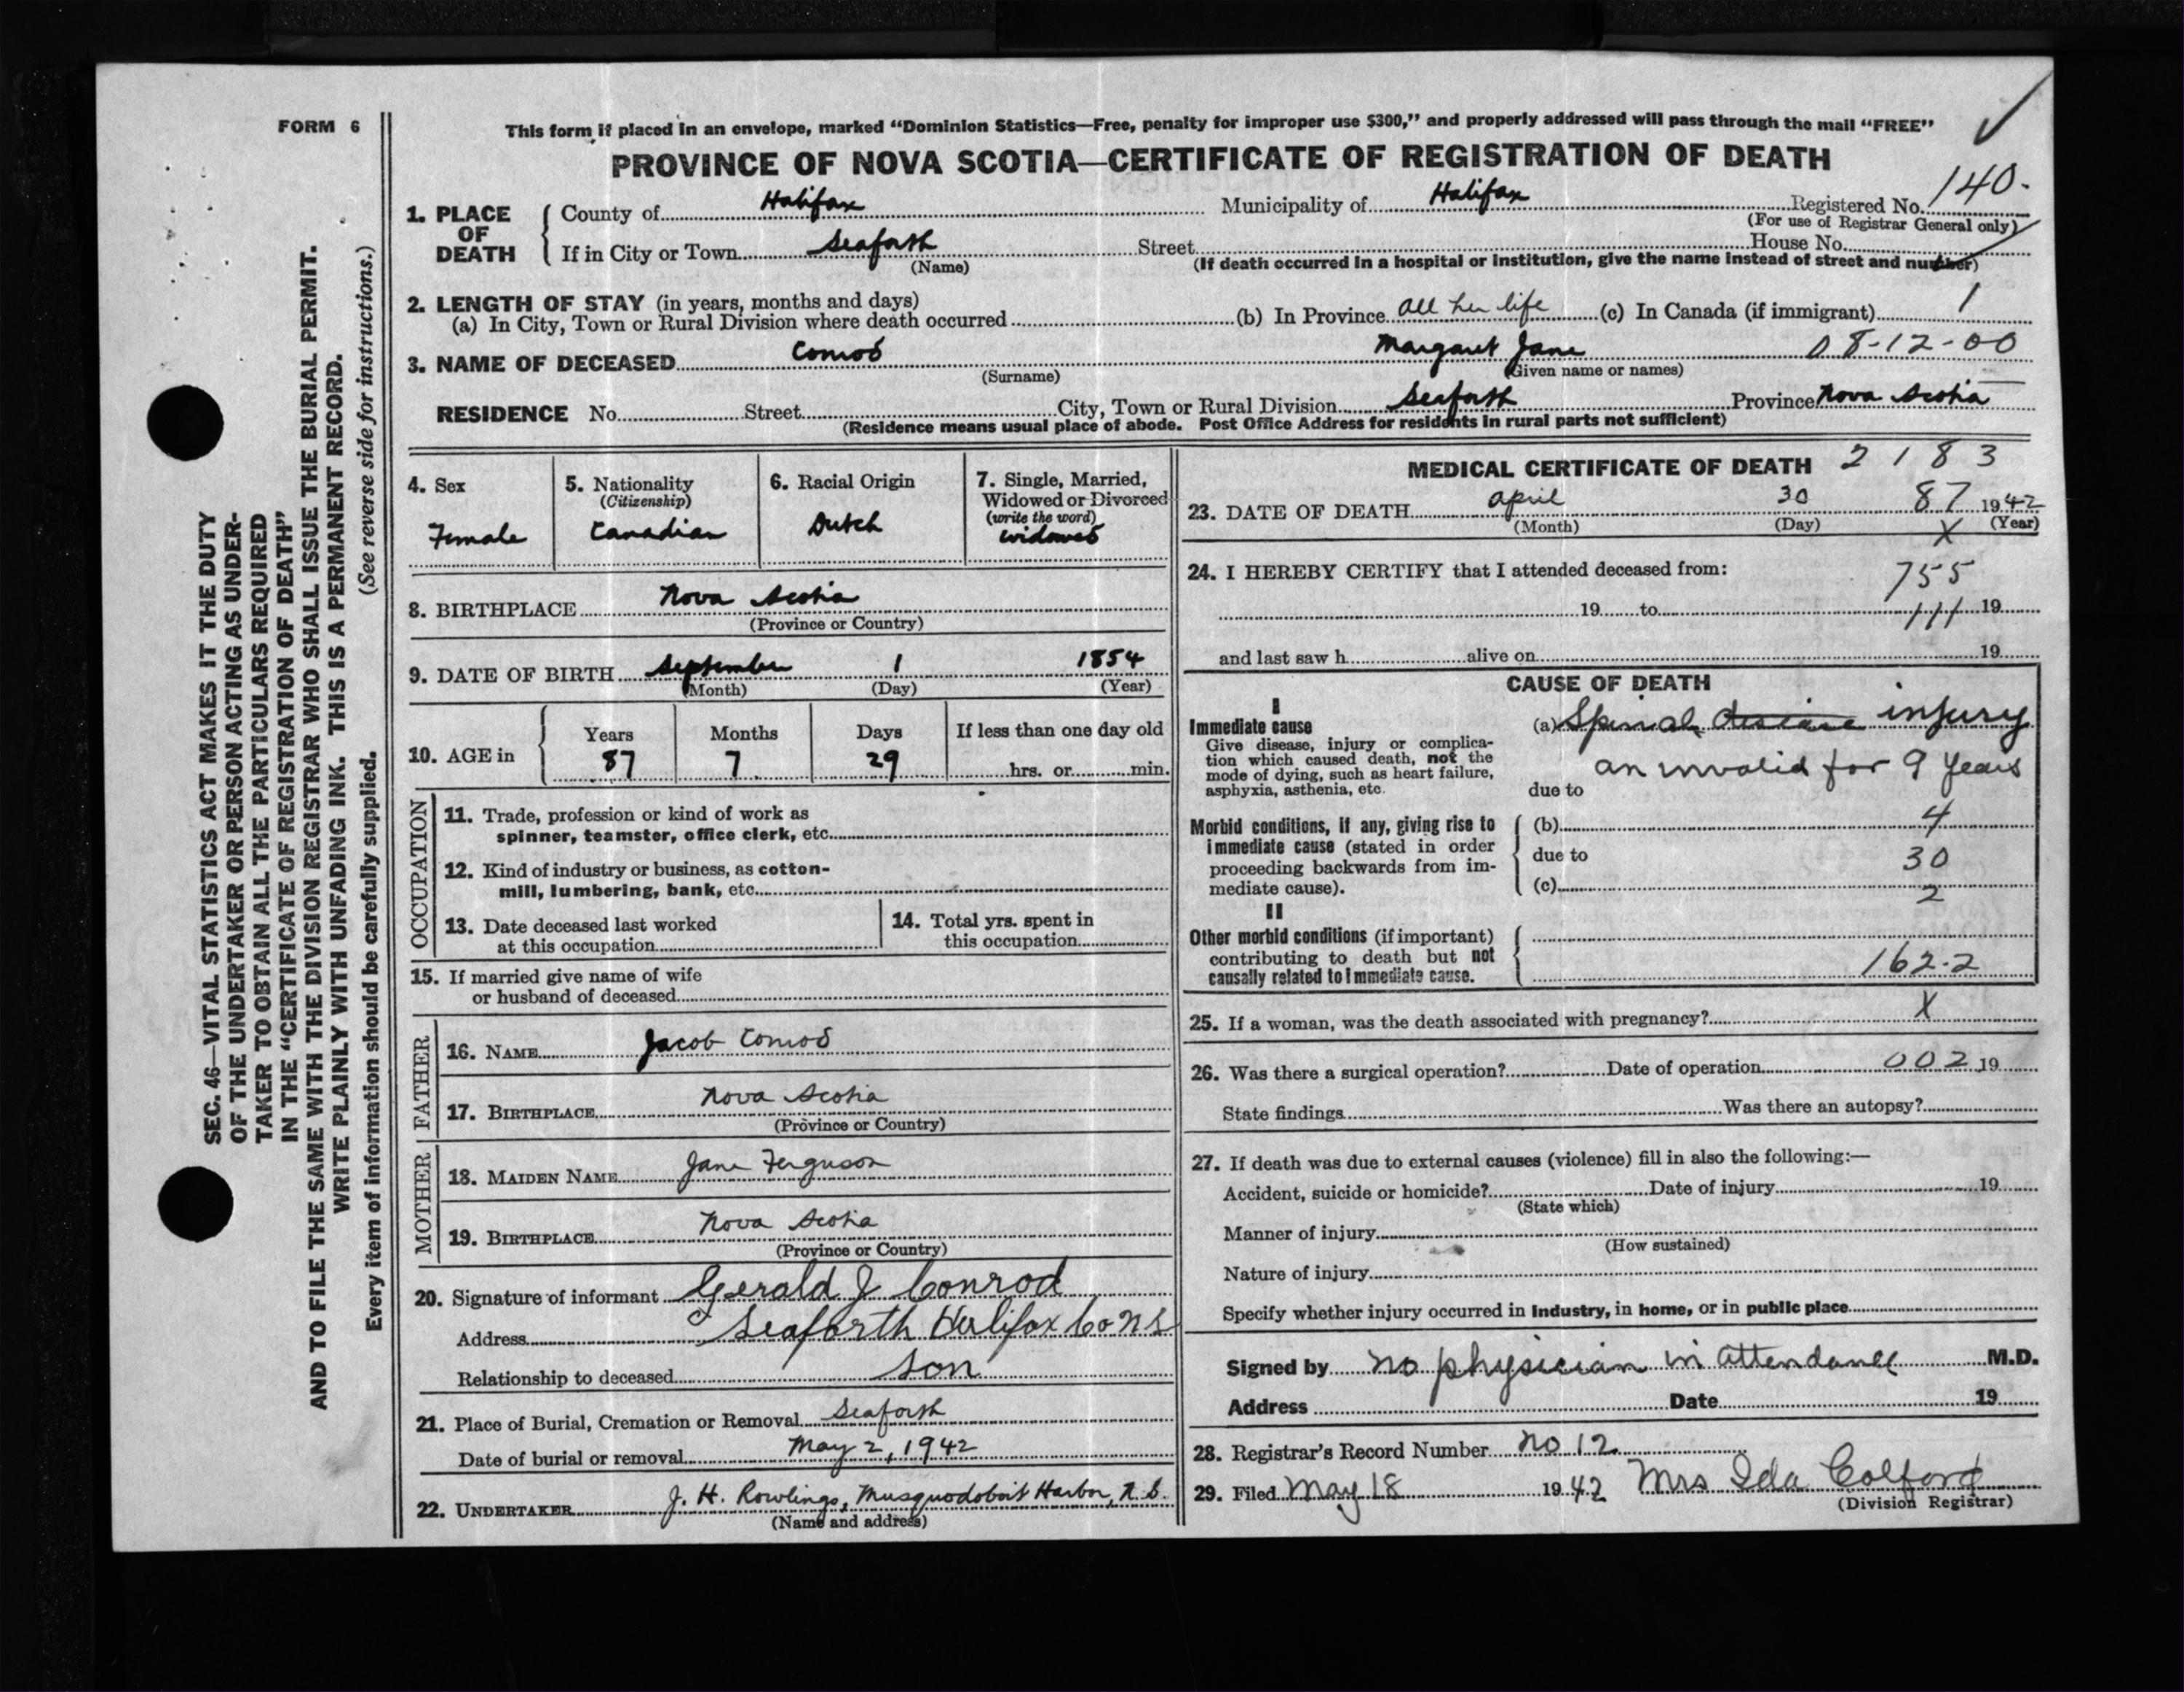 FORM 6
This form if placed in an envelope, marked "Dominion Statistics—Free, penalty for improper use $300," and properly addressed will pass through the mail "FREE"
PROVINCE OF NOVA SCOTIA—CERTIFICATE OF REGISTRATION OF DEATH
140.
1. PLACE OF DEATH County of Halifax Municipality of Halifax Registered No.
(For use of Registrar General only)
If in City or Town Seaforth Street House No.
(Name) (If death occurred in a hospital or institution, give the name instead of street and number)
2. LENGTH OF STAY (in years, months and days)
(a) In City, Town or Rural Division where death occurred (b) In Province All her life (c) In Canada (if immigrant) 1
3. NAME OF DECEASED Conrod Margaret Jane 08-12-00
(Surname) (Given name or names)
RESIDENCE No. Street City, Town or Rural Division Seaforth Province Nova Scotia
(Residence means usual place of abode. Post Office Address for residents in rural parts not sufficient)
4. Sex
Female
5. Nationality
(Citizenship)
Canadian
6. Racial Origin
Dutch
7. Single, Married,
Widowed or Divorced
(write the word)
widowed
8. BIRTHPLACE Nova Scotia
(Province or Country)
9. DATE OF BIRTH September 1 1854
(Month) (Day) (Year)
10. AGE in Years Months Days If less than one day old
87 7 29 hrs. or min.
OCCUPATION
11. Trade, profession or kind of work as
spinner, teamster, office clerk, etc.
12. Kind of industry or business, as cotton-
mill, lumbering, bank, etc.
13. Date deceased last worked
at this occupation
14. Total yrs. spent in
this occupation
15. If married give name of wife
or husband of deceased
FATHER
16. NAME Jacob Conrod
17. BIRTHPLACE Nova Scotia
(Province or Country)
MOTHER
18. MAIDEN NAME Jane Ferguson
19. BIRTHPLACE Nova Scotia
(Province or Country)
20. Signature of informant Gerald J Conrod
Address Seaforth Halifax Co N S
Relationship to deceased son
21. Place of Burial, Cremation or Removal Seaforth
Date of burial or removal May 2, 1942
22. UNDERTAKER J. H. Rowlings, Musquodoboit Harbor, N. S.
(Name and address)
MEDICAL CERTIFICATE OF DEATH 2183
23. DATE OF DEATH April 30 87 1942
(Month) (Day) X (Year)
24. I HEREBY CERTIFY that I attended deceased from:
755
19 to 111 19
and last saw h alive on 19
CAUSE OF DEATH
I
Immediate cause
Give disease, injury or complica-
tion which caused death, not the
mode of dying, such as heart failure,
asphyxia, asthenia, etc.
(a) Spinal disease injury
an invalid for 9 years
due to
Morbid conditions, if any, giving rise to
immediate cause (stated in order
proceeding backwards from im-
mediate cause).
(b) 4
due to 30
(c) 2
II
Other morbid conditions (if important)
contributing to death but not
causally related to immediate cause.
162-2
25. If a woman, was the death associated with pregnancy? X
26. Was there a surgical operation? Date of operation 002 19
State findings Was there an autopsy?
27. If death was due to external causes (violence) fill in also the following:—
Accident, suicide or homicide? Date of injury 19
(State which)
Manner of injury
(How sustained)
Nature of injury
Specify whether injury occurred in industry, in home, or in public place
Signed by no physician in attendance M.D.
Address Date 19
28. Registrar's Record Number No 12
29. Filed May 18 1942 Mrs Ida Colford
(Division Registrar)
SEC. 46—VITAL STATISTICS ACT MAKES IT THE DUTY
OF THE UNDERTAKER OR PERSON ACTING AS UNDER-
TAKER TO OBTAIN ALL THE PARTICULARS REQUIRED
IN THE "CERTIFICATE OF REGISTRATION OF DEATH"
AND TO FILE THE SAME WITH THE DIVISION REGISTRAR WHO SHALL ISSUE THE BURIAL PERMIT.
WRITE PLAINLY WITH UNFADING INK. THIS IS A PERMANENT RECORD.
Every item of information should be carefully supplied. (See reverse side for instructions.)